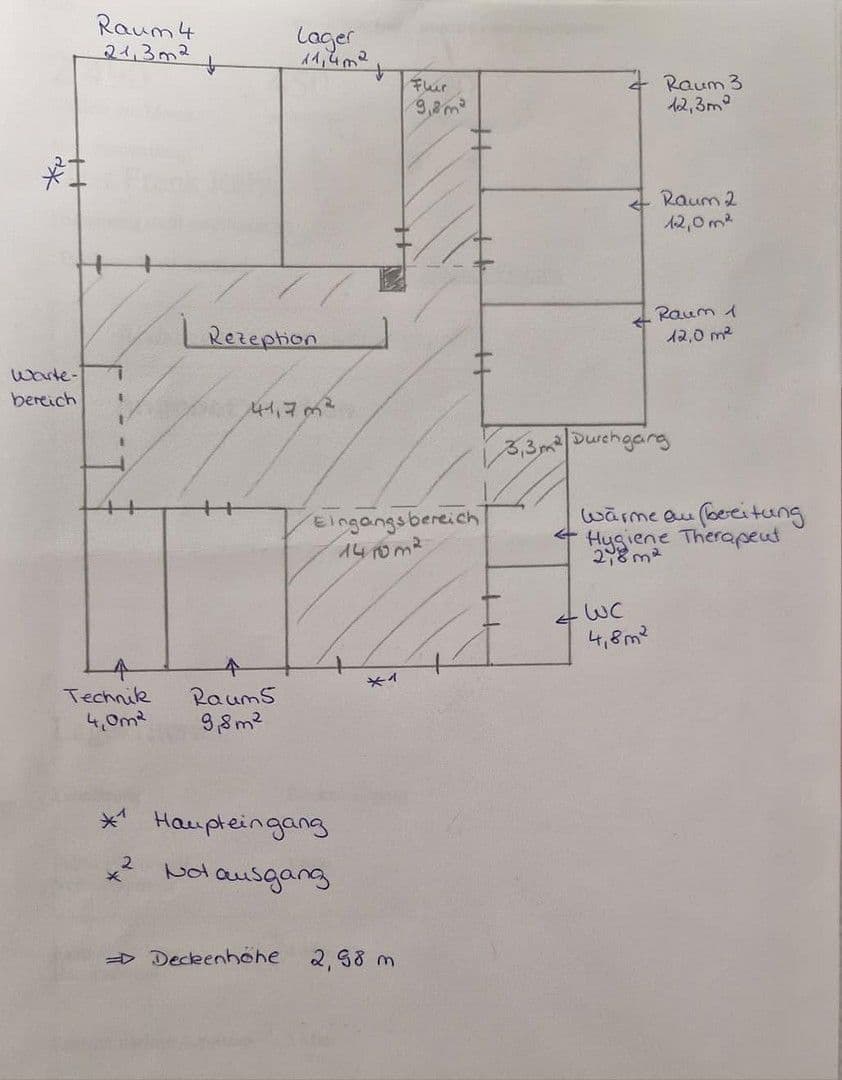 Raum 4
21,3m²
Lager
11,4m²
Flur
9,8m²
Raum 3
12,3m²
*2
Raum 2
12,0m²
Raum 1
12,0 m²
Rezeption
Warte-
bereich
41,7m²
3,3m² Durchgang
Eingangsbereich
14,0m²
Wärmeaufbereitung
Hygiene Therapeut
2,8m²
WC
4,8m²
*1
Technik
4,0m²
Raum5
9,8m²
*1 Haupteingang
*2 Notausgang
⇒ Deckenhöhe 2,98 m